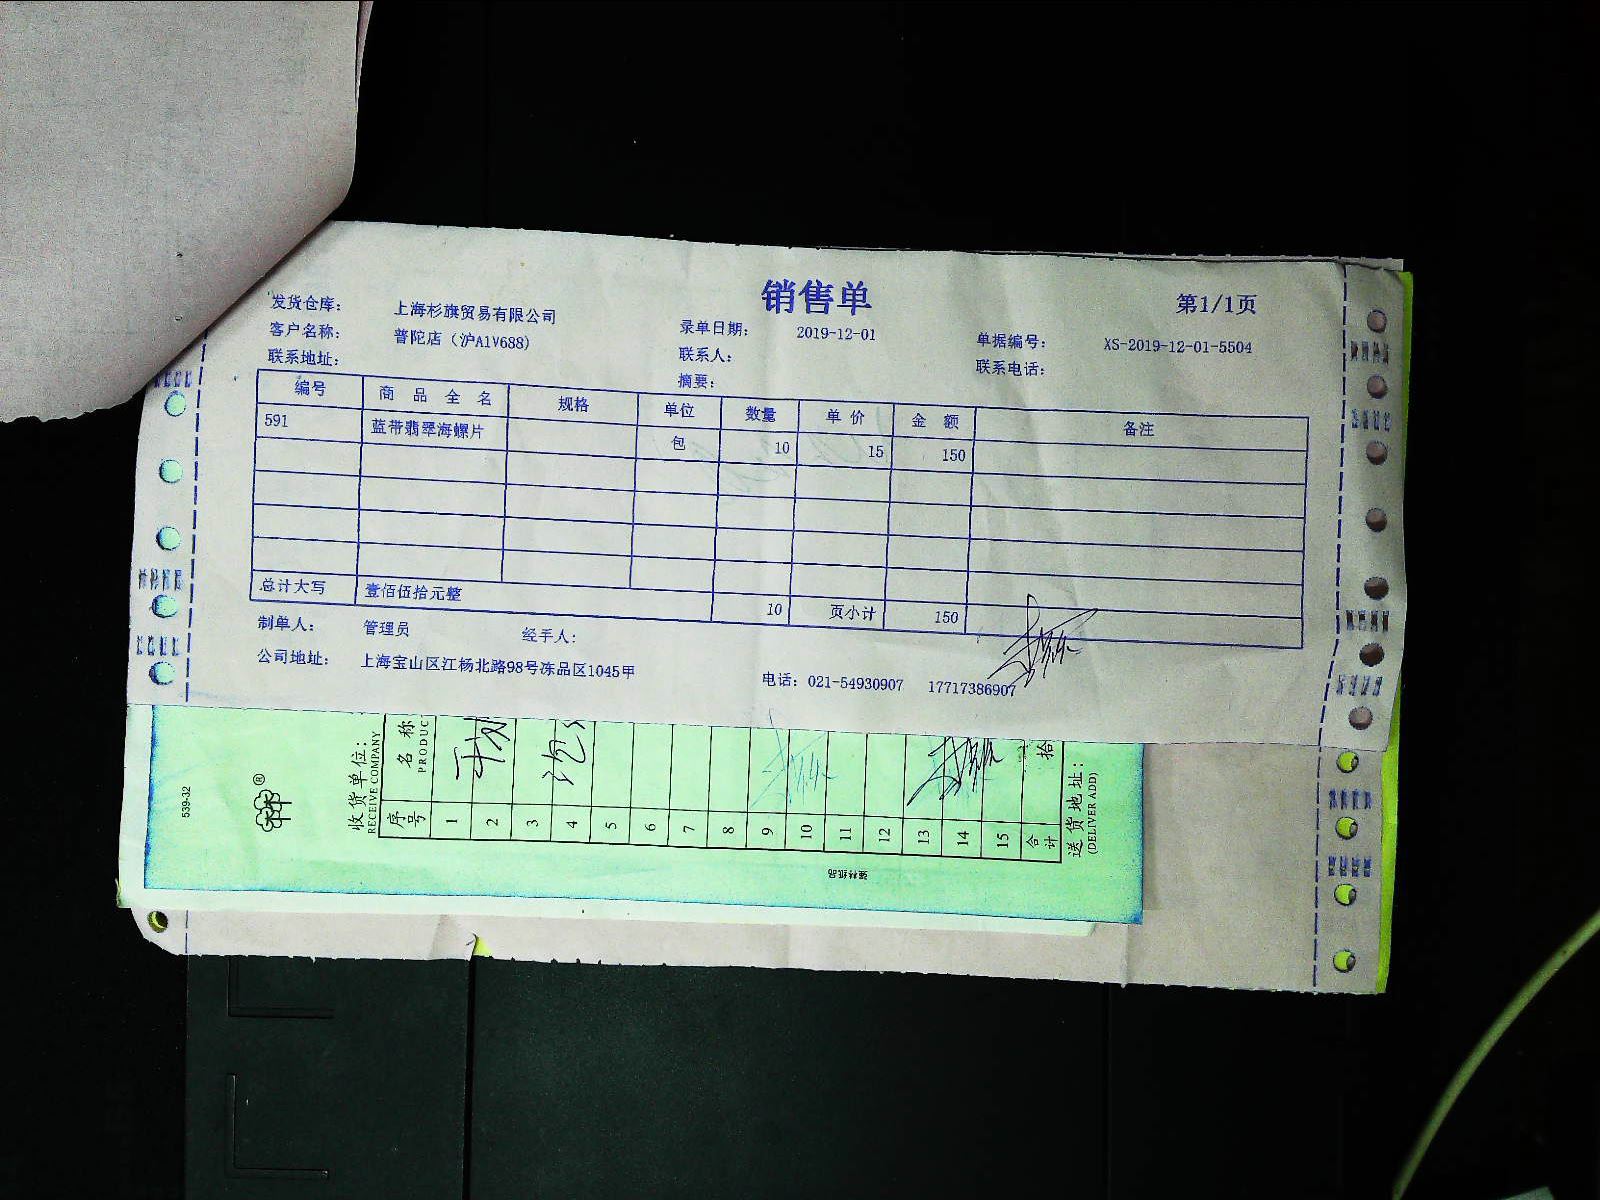 销售单
第1/1页
发货仓库： 上海杉旗贸易有限公司
录单日期： 2019-12-01
单据编号： XS-2019-12-01-5504
客户名称： 普陀店（沪A1V688）
联系人：
联系电话：
联系地址：
摘要：
编号 商品全名 规格 单位 数量 单价 金额 备注
591 蓝带翡翠海螺片 包 10 15 150
总计大写 壹佰伍拾元整 10 页小计 150
制单人： 管理员 经手人：
公司地址： 上海宝山区江杨北路98号冻品区1045甲 电话：021-54930907 17717386907
539-32
®
收货单位：
RECEIVE COMPANY
序号 名称
PRODUC
1
2
3
4
5
6
7
8
9
10
11
12
13
14
15
合计 拾
送货地址：
(DELIVER ADD)
强林纸品